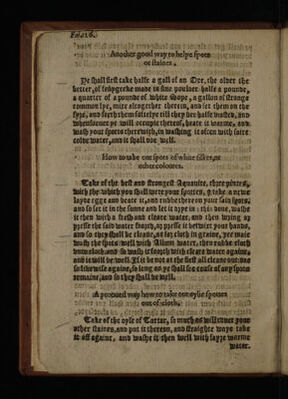 Another good way to helpe spots
or staines.
Ye shall first take halfe a gall of an Oxe, the older the
better, of fenygreke made in fine pouder halfe a pounde,
a quarter of a pounde of white sope, a gallon of strange
common lye, mire altogether therein, and set them on the
fyre, and seeth them softely till they bee halfe wasted, and
whensoever ye will occupie thereof, heate it warme, and
wash your spots therewith, in washing it often with faire
colde water, and it shall doe well.
How to take out spots of white silke, or
other colours.
Take of the best and strongest Aquavite, three
with the which you shall wete your spottes, take a newe
layde egge and beate it, and rubbe thereon your said spots,
and so set it in the sunne and let it drye: this done, washe
it then with a fresh and cleare water, and then wring or
presse the said water foorth, or presse it betwixt your hands,
and so they shall be cleane, as for cloth in graine, yee must
wash the spots well with Allum water, then rubbe cloth
with cloth, and so wash it foorth with cleare water againe,
and it will be well. If it be not at the first all cleare out doe
so likewise againe, so long as ye shall see cause of any spots
remaine, and so they shall be well.
A profound way how to take out oylie spottes
out of cloth.
Take of the oyle of Tartar, so much as will cover your
other staines, and put it thereon, and straighte waye take
it off againe, and washe it then well with fayre warme
water.